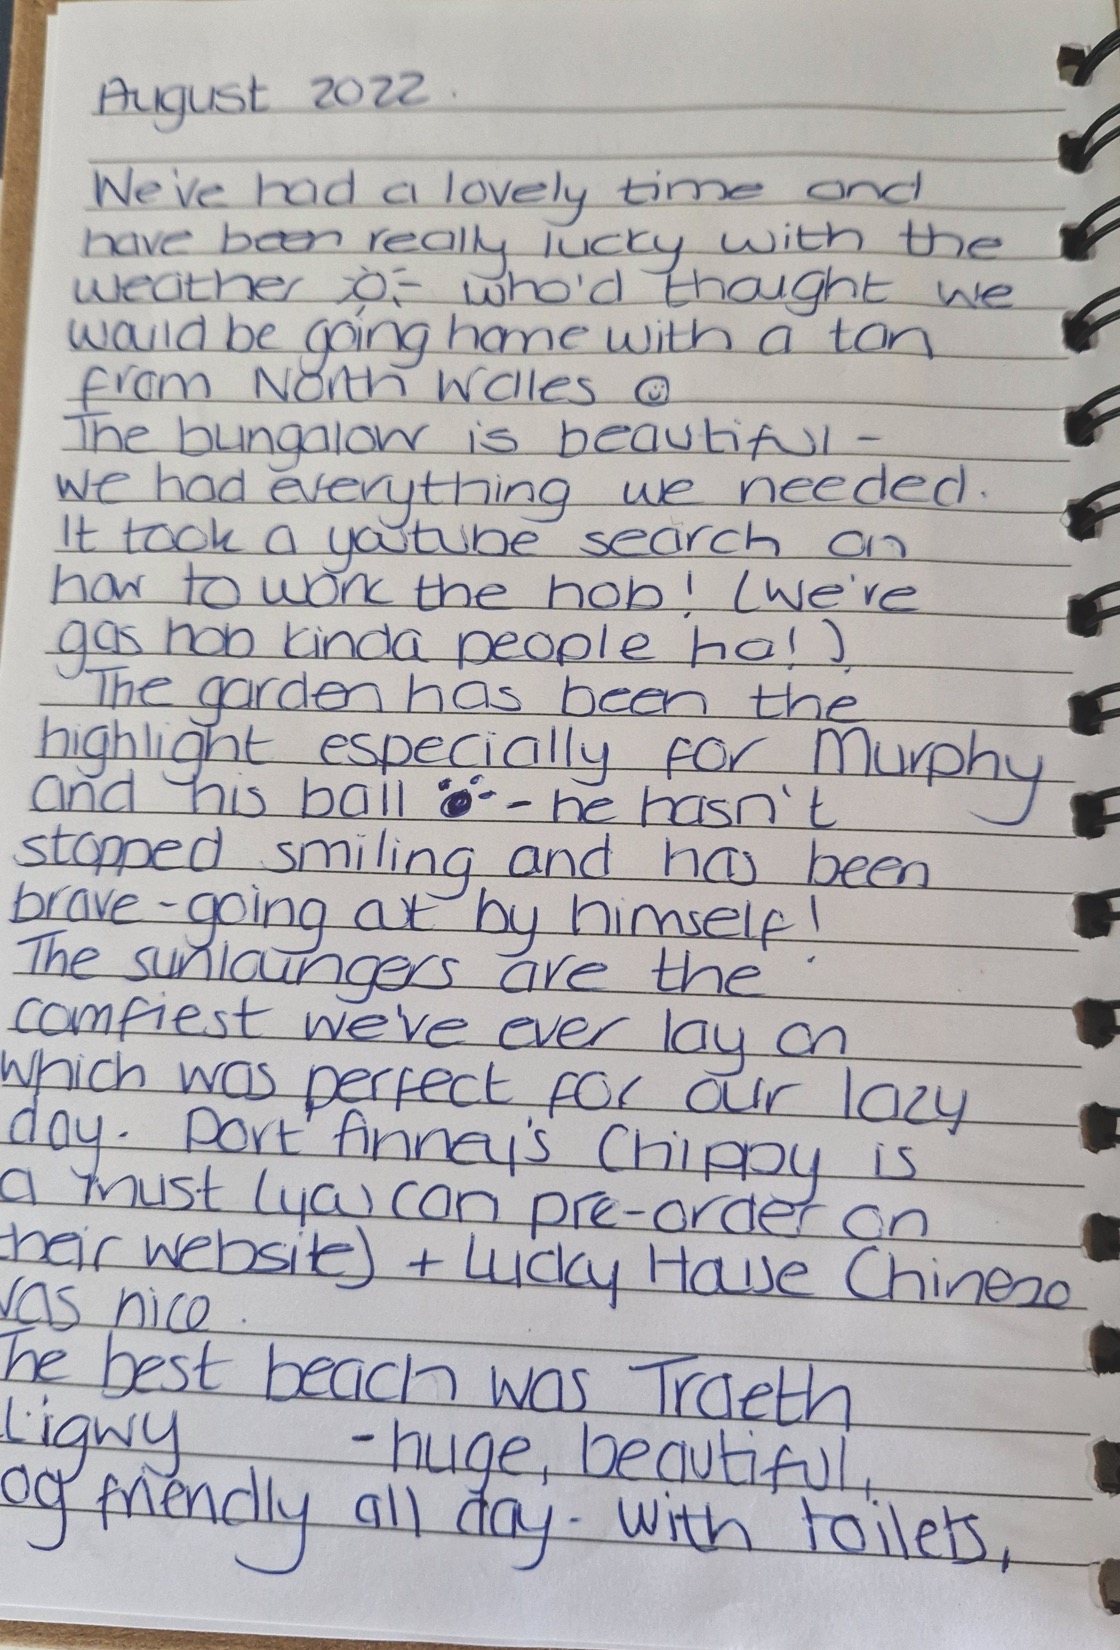 August 2022.
We've had a lovely time and
have been really lucky with the
weather who'd thought we
would be going home with a tan
from North Wales ☺
The bungalow is beautiful -
we had everything we needed.
It took a youtube search on
how to work the hob! (We're
gas hob kinda people ha!)
The garden has been the
highlight especially for Murphy
and his ball - he hasn't
stopped smiling and has been
brave - going out by himself!
The sunloungers are the
comfiest we've ever lay on
which was perfect for our lazy
day. Port finney's Chippy is
a must (you can pre-order on
their website) + Lucky House Chinese
was nice.
The best beach was Traeth
Ligwy - huge, beautiful,
og friendly all day. With toilets,